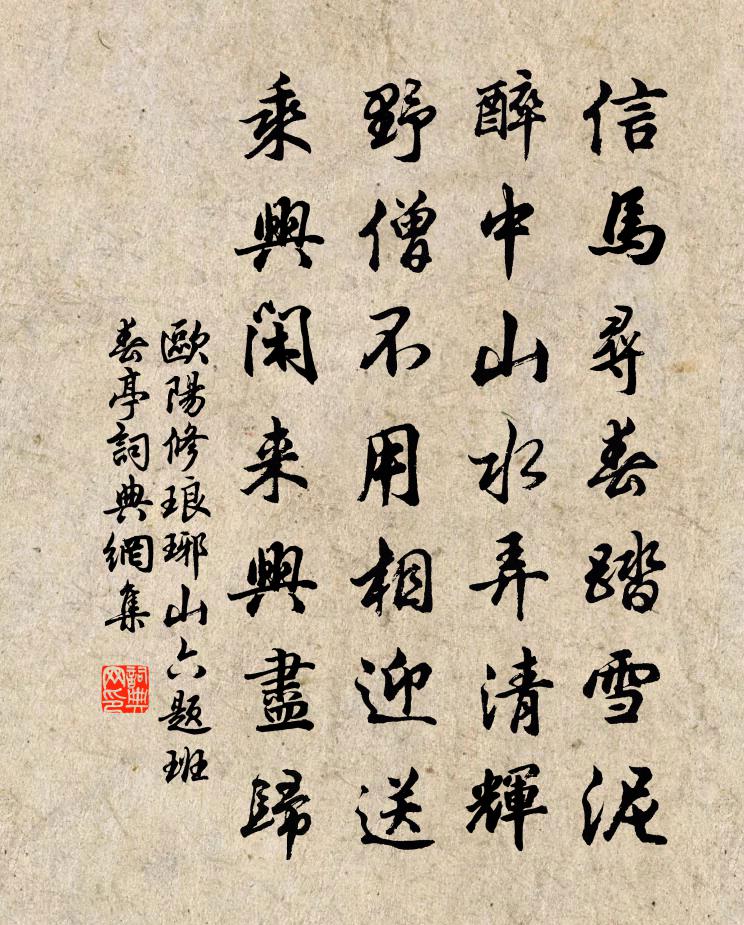 信馬尋春踏雪泥
醉中山水弄清輝
野僧不用相迎送
乘興閑来興盡歸
歐陽修琅琊山六題班
春亭詞典網集
詞典网印